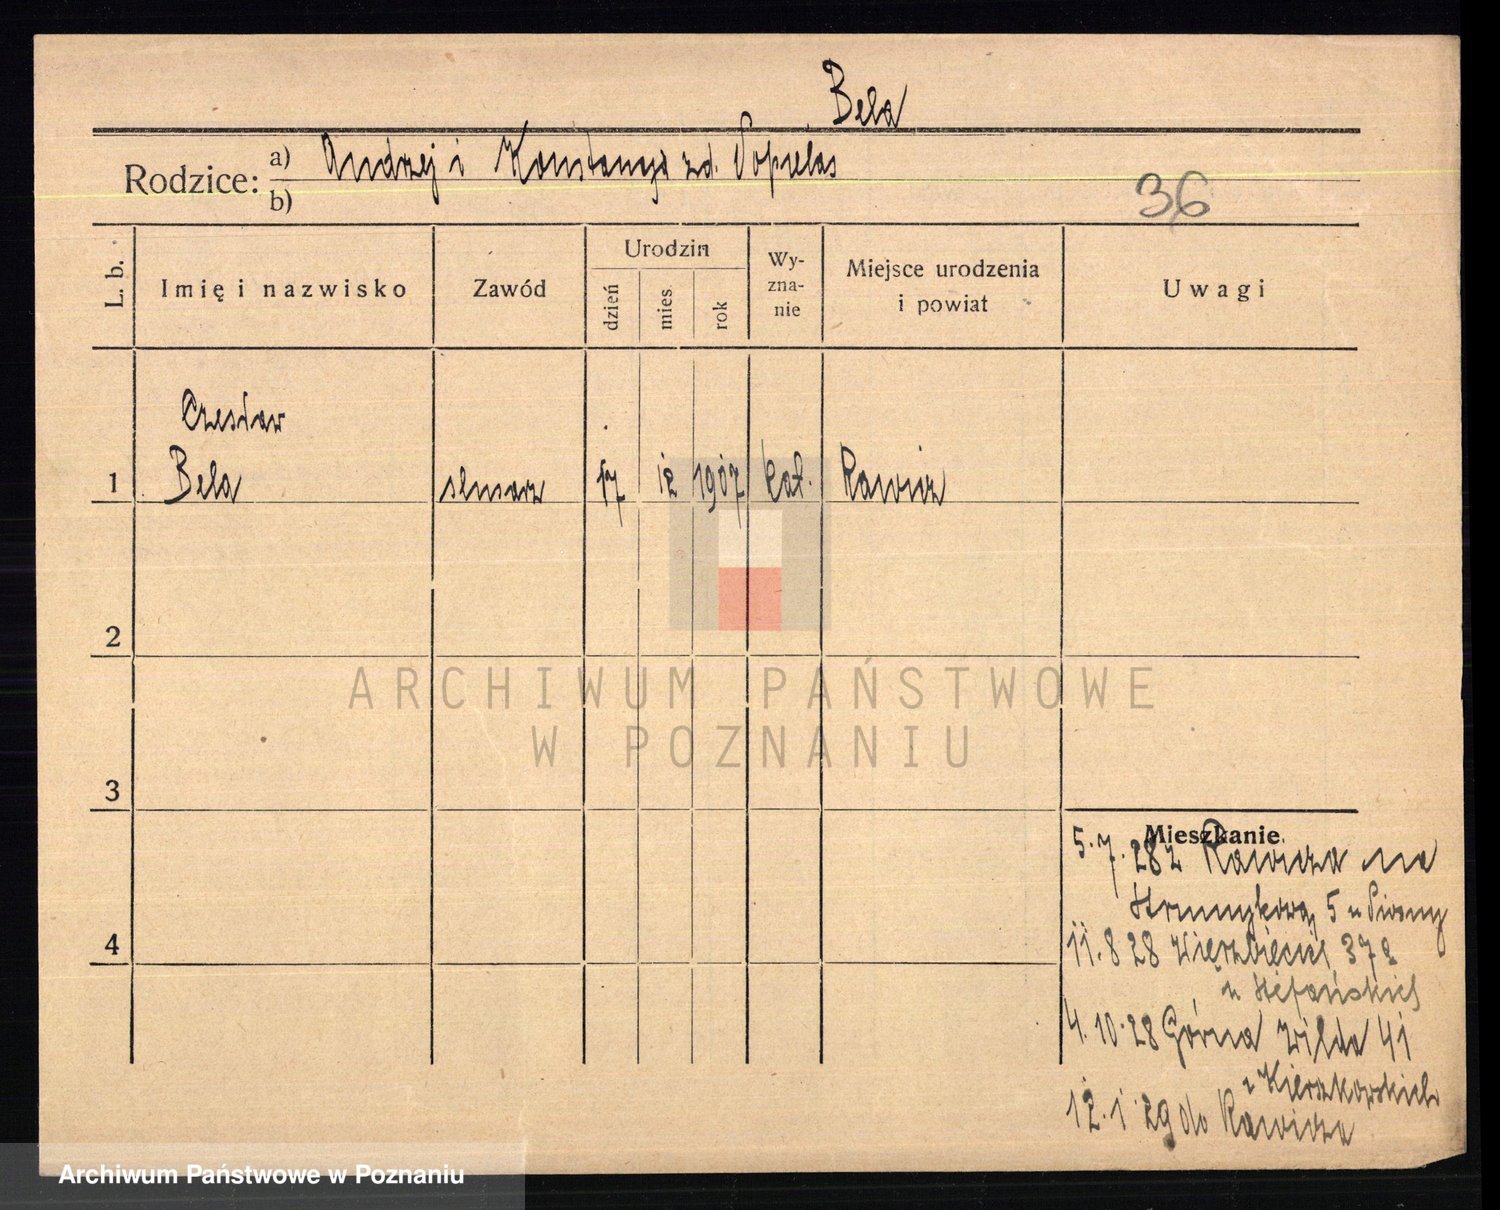 Bela
Rodzice: a) Andrzej i Konstancja zd. Popielas
b)
36
L. b.
Imię i nazwisko
Zawód
Urodzin
dzień
mies.
rok
Wy-
zna-
nie
Miejsce urodzenia
i powiat
Uwagi
Czesław
1 Bela ślusarz 17 12 1907 kat. Rawicz
2
3
4
ARCHIWUM PAŃSTWOWE
W POZNANIU
Mieszkanie.
5.7.28 z Rawicza na
5 u
11.8 28 Wierzbięcice 37a
u Stefańskich
4.10.28 Górna Wilda 41
u Kierzkowskich
12.1 29 do Rawicza
Archiwum Państwowe w Poznaniu